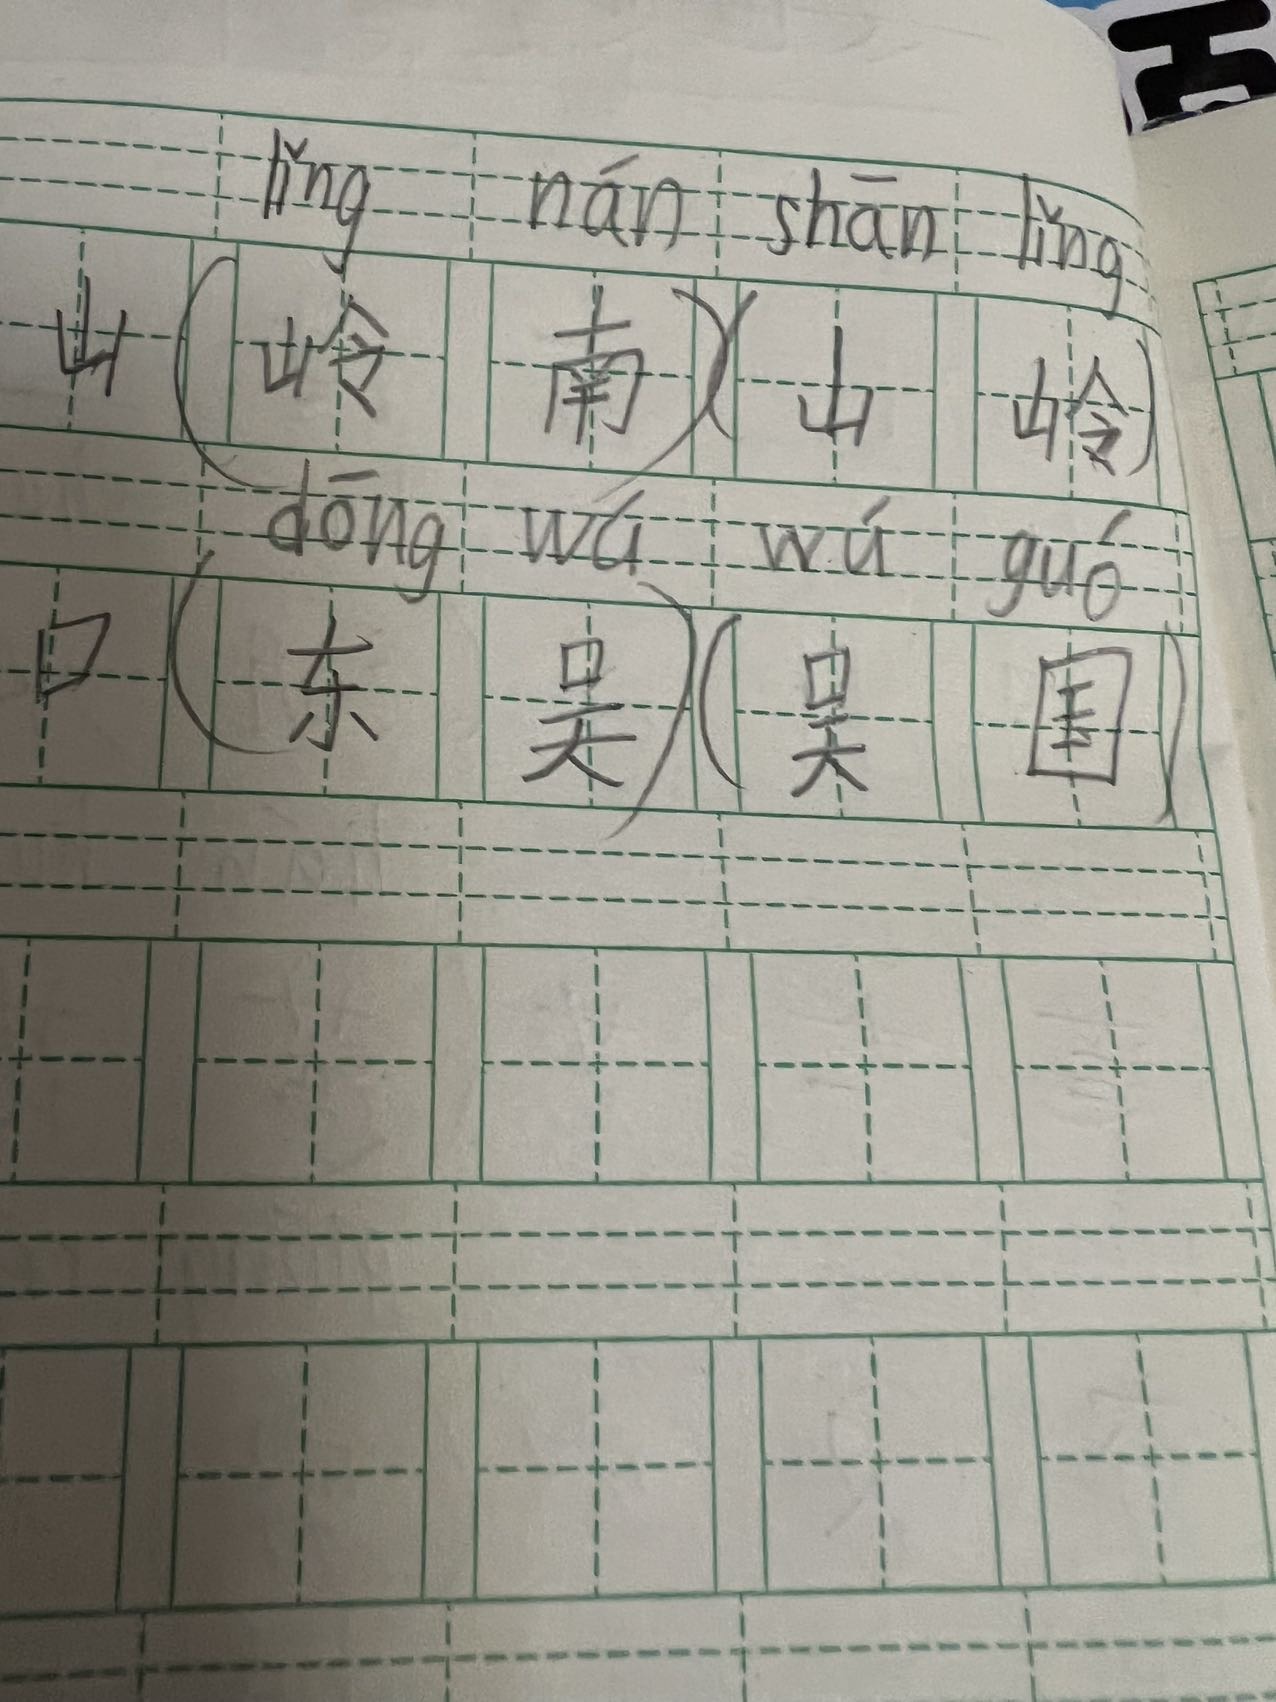 lǐng nán shān lǐng
山(岭南)(山岭)
dōng wú wú guó
口(东吴)(吴国)